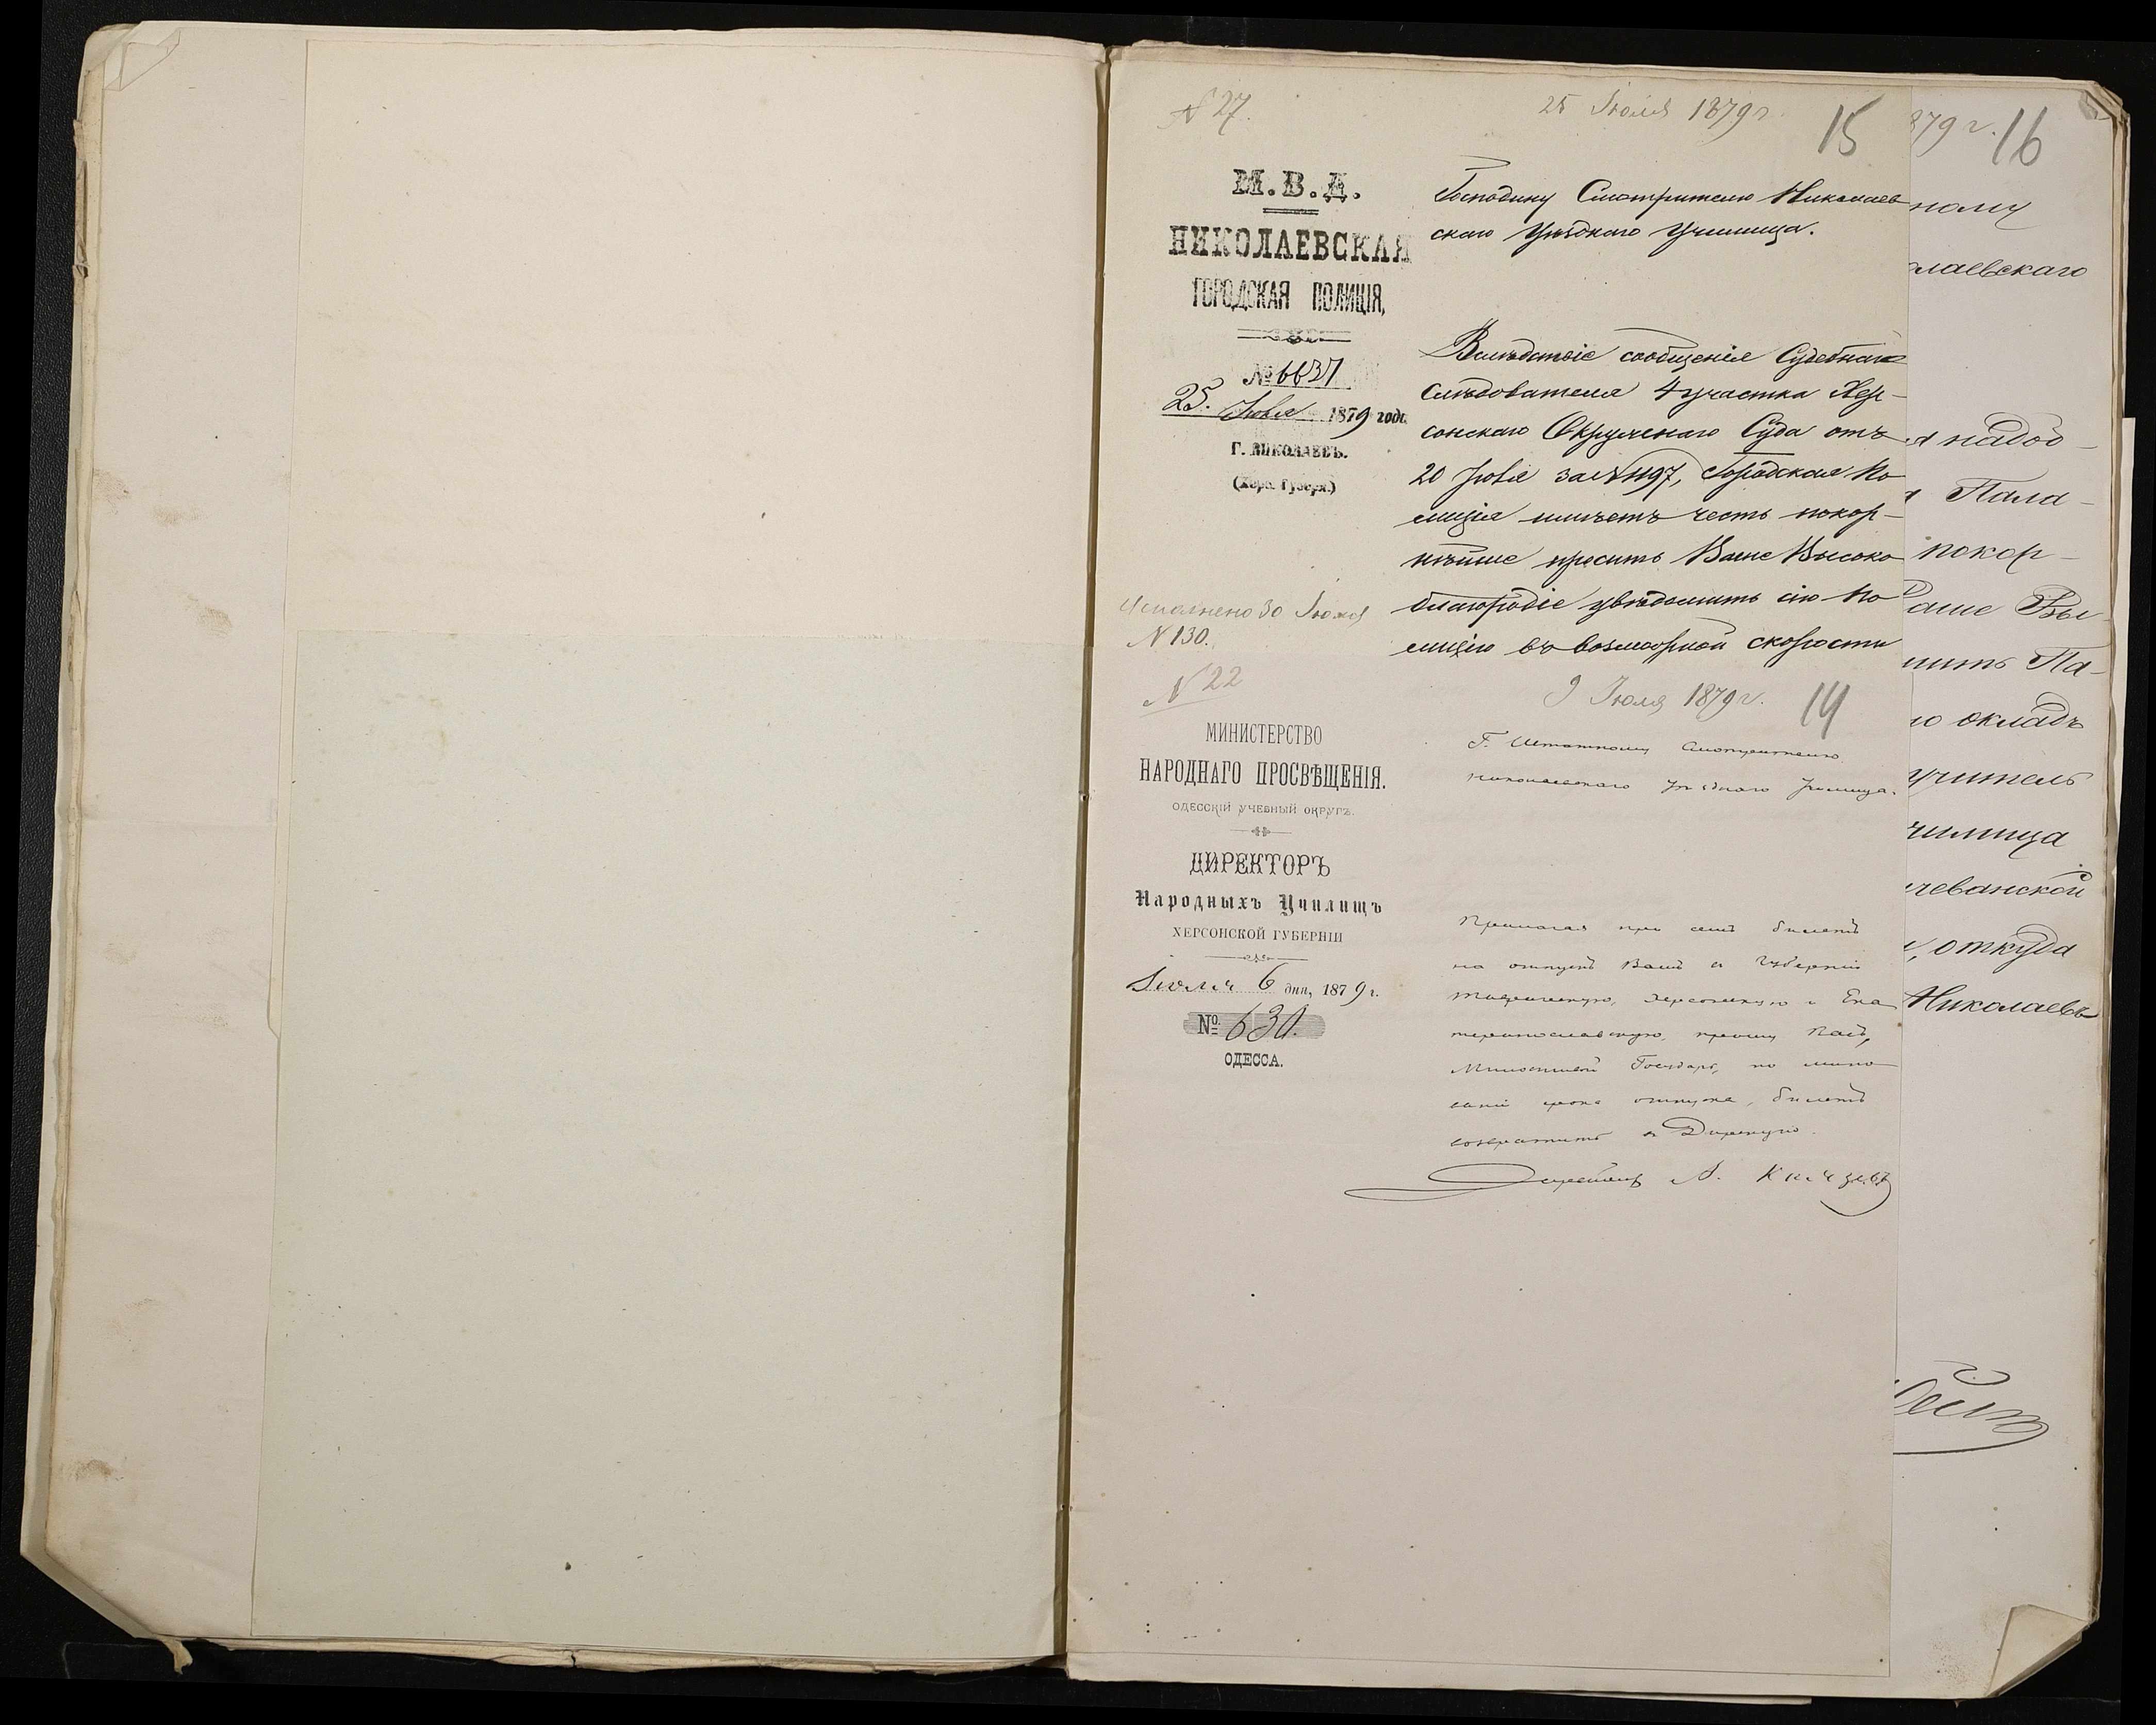 N 27.
25 Іюля 1879 г.
15
М. В. Д.
НИКОЛАЕВСКАЯ
ГОРОДСКАЯ ПОЛИЦІЯ,
№ 6637
25. Іюля 1879 года
Г. НИКОЛАЕВЪ.
(Херс. Губерн.)
Исполнено 30 Іюля
N 130.
Господину Смотрителю Николаев
скаго Уѣзднаго Училища.
Вслѣдствіе сообщенія Судебнаго
Слѣдователя 4 участка Хер-
сонскаго Окружнаго Суда отъ
20 Іюля за N 1197, Городская По
лиція имѣетъ честь покор-
нѣйше просить Ваше Высоко
благородіе увѣдомить сію По
лицію въ возможной скорости
N 22
9 Іюля 1879 г.
14
МИНИСТЕРСТВО
НАРОДНАГО ПРОСВѢЩЕНІЯ.
ОДЕССКІЙ УЧЕБНЫЙ ОКРУГЪ.
ДИРЕКТОРЪ
Народныхъ Училищъ
ХЕРСОНСКОЙ ГУБЕРНІИ
Іюля 6 дня, 1879 г.
№ 630.
ОДЕССА.
Г. Штатному Смотрителю
Николаевскаго Уѣзднаго Училища.
Прилагая при семъ билетъ
на отпускъ Вамъ въ Губерніи
Таврическую, Херсонскую и Ека
теринославскую, прошу Васъ,
Милостивый Государь, по мино
ваніи срока отпуска, билетъ
возвратить въ Дирекцію.
Директоръ А. Князевъ
879 г. 16
ному
лаевскаго
я надоб-
Пала-
покор-
аше Вы
мить Па-
о окладѣ
учитель
чилища
чеванской
, откуда
Николаевъ